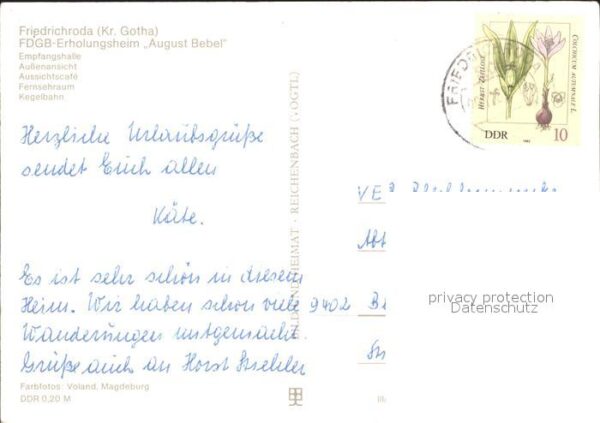 Friedrichroda (Kr. Gotha)
FDGB-Erholungsheim „August Bebel"
Empfangshalle
Außenansicht
Aussichtscafé
Fernsehraum
Kegelbahn
Herzliche Urlaubsgrüße
sendet Euch allen
Käte.
Es ist sehr schön in diesem
Heim. Wir haben schon viele
Wanderungen mitgemacht.
Grüße auch an Horst
Farbfotos: Voland, Magdeburg
DDR 0,20 M
BILD UND HEIMAT · REICHENBACH (VOGTL)
HERBST-ZEITLOSE
COLCHICUM AUTUMNALE L.
DDR
10
1982
FRIEDRI
VE
Abt
9402
privacy protection
Datenschutz